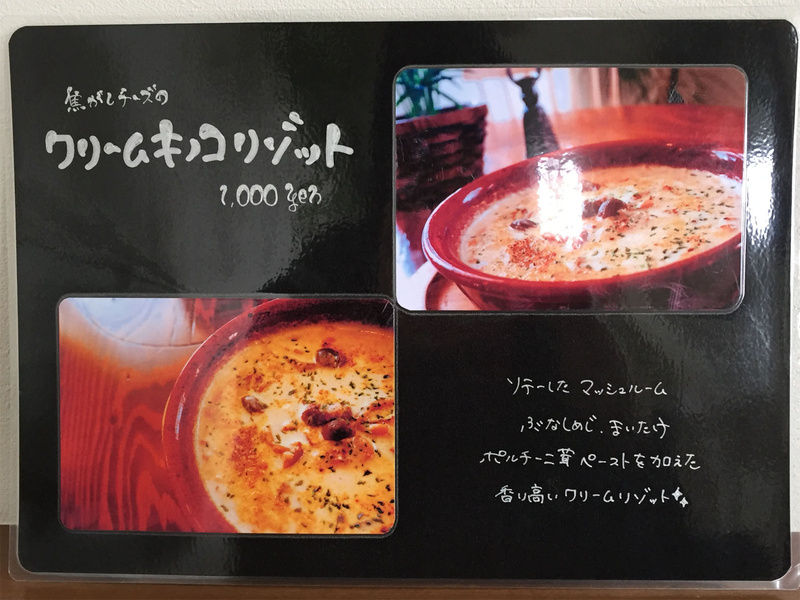 焦がしチーズの
クリームキノコリゾット
1,000 yen
ソテーした マッシュルーム
ぶなしめじ、まいたけ
ポルチーニ茸 ペーストを加えた
香り高い クリームリゾット